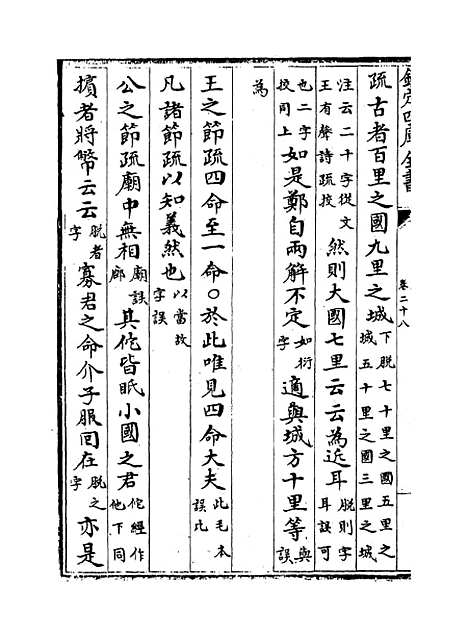 欽定四庫全書
卷二十八
疏古者百里之國九里之城下脱七十里之國五里之城五十里之國三里之城
注云二十字從文王有聲詩疏挍然則大國七里云云為近耳脱則字耳誤可
也二字挍同上如是鄭自兩解不定如衍字適與城方十里等與誤
為
王之節疏四命至一命○於此唯見四命大夫此毛本誤比
凡諸節疏以知義然也以當故字誤
公之節疏廟中無相廟誤廊其佗皆眡小國之君佗經作他下同
擯者將幣云云脱者字寡君之命介子服回在脱之字亦是